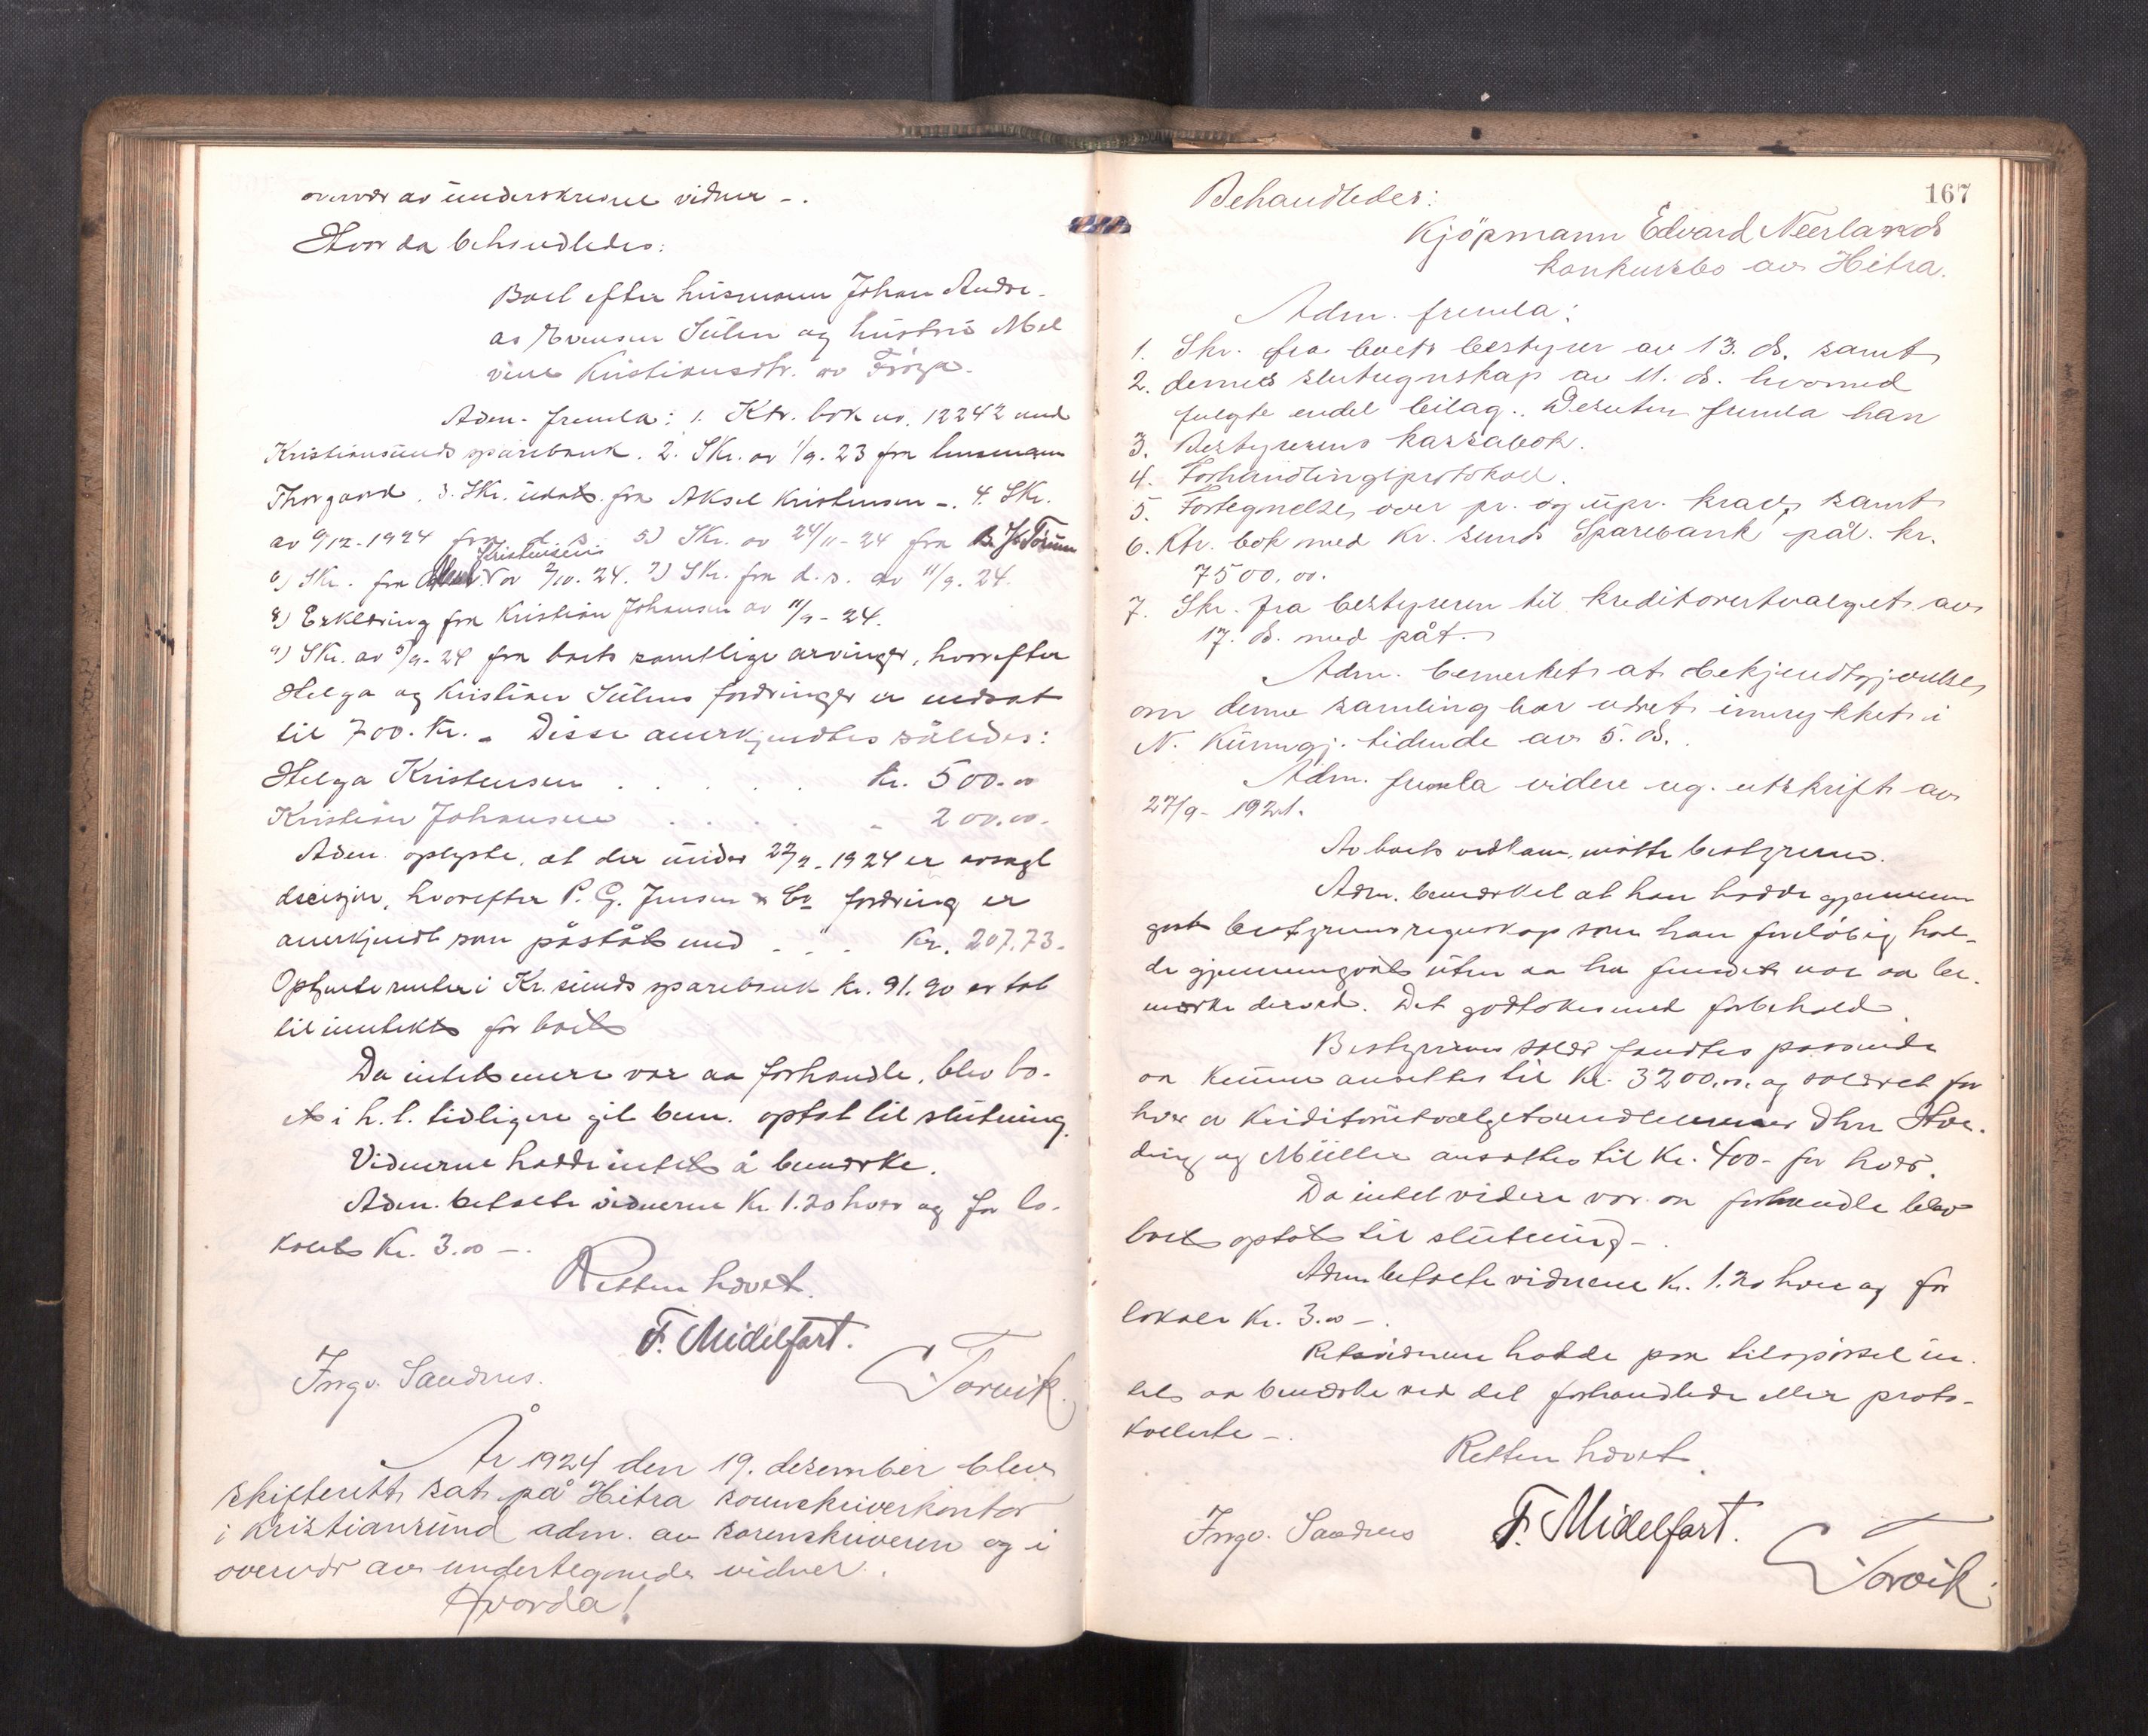 overvær av underskrevne vidner -.
Hvor da behandledes:
Boet efter husmann Johan Andre-
as Evensen Sulen og hustru Mel
vine Kristiansdtr. av Frøya.
Adm. fremla: 1. Ktr. bok no. 12242 med
Kristiansunds sparebank. 2. Skr. av 1/9. 23 fra lensmann
Thorgaard. 3. Skr. udat. fra Aksel Kristensen -. 4. Skr.
av 9/12-1924 fra d. s. 5) Skr. av 24/11-24 fra
Kristiansen
6) Skr. fra av 2/10. 24. 7) Skr. fra d. s. av 11/9. 24.
8) Erklæring fra Kristian Johansen av 11/9-24.
9) Skr. av 5/9-24 fra boets samtlige arvinger, hvorefter
Helga og Kristian Sulens fordringer er nedsat
til 700. Kr. - Disse anerkjendtes således:
Helga Kristensen . . . . . Kr. 500.00
Kristian Johansen . . . . - 200.00.
Adm. oplyste, at der under 22/9-1924 er avsagt
decisjon, hvorefter P. G. Jensen & Co fordring er
anerkjendt som påstået med . " . Kr. 207.73.
Optjente renter i Kr.sunds sparebank kr. 91.90 er tat
til inntekt for boet
Da intet mere var aa forhandle, blev bo-
et i h. t. tidligere git bem. optat til slutning.
Vidnerne hadde intet å bemærke.
Adm. betalte vidnerne Kr. 1.20 hver og for lo-
kalet Kr. 3.00 -.
Retten hævet.
F. Midelfart.
Ingv. Sandnes. Torvik.
År 1924 den 19. desember blev
skifterett sat på Hitra sorenskriverkontor
i Kristiansund adm. av sorenskriveren og i
overvær av undertegnede vidner.
Hvorda!
167
Behandledes:
Kjöpmann Edvard Neerlands
konkursbo av Hitra.
Adm. fremla:
1. Skr. fra boets bestyrer av 13. ds. samt
2. dennes slutregnskap av 11. ds. hvormed
fulgte endel bilag. Desuten fremla han
3. Bestyrerens kassabok.
4. Forhandlingsprotokoll.
5. Fortegnelse over pr. og upr. krav, samt
6. Ktr. bok med Kr. sunds Sparebank pål. kr.
7500.00.
7. Skr. fra bestyreren til kreditorutvalget av
17. ds. med påt.
Adm. bemerket at bekjendtgjørelse
om denne samling har været innrykket i
N. Kunngj. tidende av 5. ds.
Adm. fremla videre reg. utskrift av
27/9-1921.
Av boets vedkom. møtte bestyreren.
Adm. bemærket at han hadde gjennem
gåt bestyrerens regnskap som han foreløbig had-
de gjennemgåt uten aa ha fundet noe aa be-
mærke derved. Det godtokes med forbehold.
Bestyrerens salær fandtes passende
aa kunne ansettes til Kr. 3200.00. og salæret for
hver av Kreditorutvalgets medlemmer dhrr Hoe-
ding og Müller ansattes til Kr. 400- for hver.
Da intet videre var aa forhandle blev
boet optat til slutning -.
Adm. betalte vidnene Kr. 1.20 hver og for
lokale Kr. 3.00 -.
Retsvidnene hadde paa tilspørsel in-
tet aa bemærke ved det forhandlede eller proto-
kollerte -.
Retten hævet.
Ingv. Sandnes F. Midelfart. Torvik.